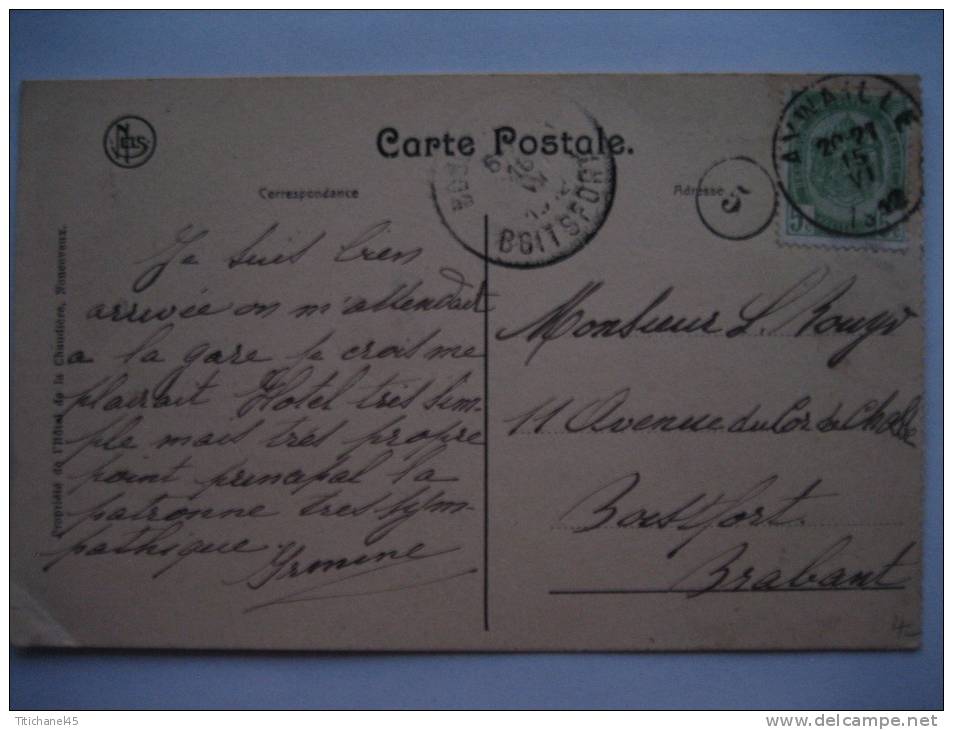 Nels
Carte Postale.
Correspondance
Adresse
5
AYWAILLE
20-21
15
VI
BOITSFORT
BOSV
Propriété de l'Hôtel de la Chaudière, Nonceveux.
Je suis bien
arrivée on m'attendait
a la gare je crois me
plairait Hotel très sim-
ple mais très propre
point principal la
patronne très sym-
pathique.
Irmine
Monsieur L.
11 Avenue du Cor de Chasse
Boitsfort
Brabant
Ttichanel45
www.delcampe.net